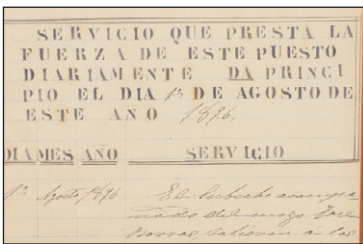 SERVICIO QUE PRESTA LA
FUERZA DE ESTE PUESTO
DIARIAMENTE DA PRINCI
PIO EL DIA 1º DE AGOSTO DE
ESTE AÑO 1896,
DIA MES AÑO SERVICIO
1º Agosto 1896 El
del José
a las